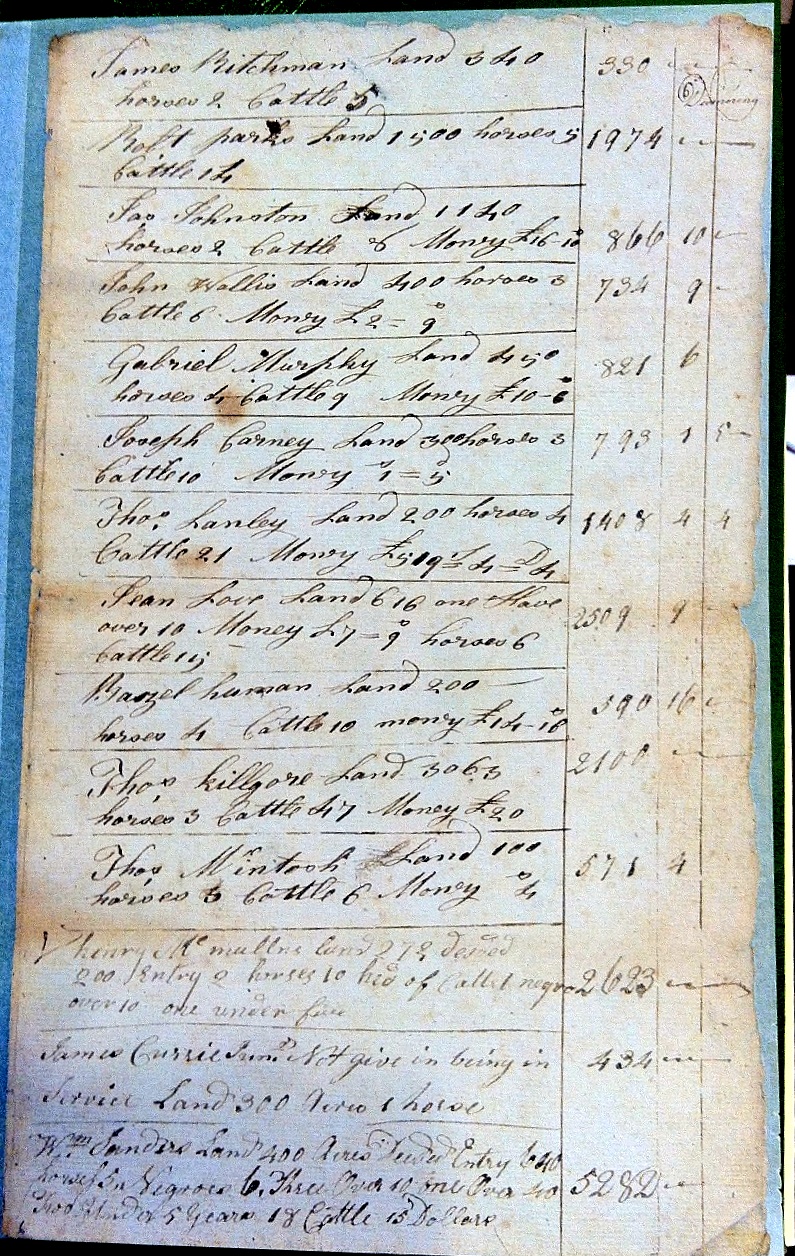 James Ritchman Land 340 330
horses 2 Cattle 5
Robt parks Land 1500 horses 5 1974
Cattle 14
Jas Johnston Land 1140
horses 2 Cattle 6 Money £16-10 866 10
John Wallis Land 400 horses 3 734 9
Cattle 6 Money £2= 9
Gabriel Murphy Land 450 821 6
horses 4 Cattle 9 Money £10-6
Joseph Carney Land 300 horses 3 793 1 5
Cattle 10 Money 1=5
Thos. Lanley Land 200 horses 4 1408 4 4
Cattle 21 Money £519 4 = 4
Land 616 one Slave
over 10 Money £7=9 horses 6 2509 9
Cattle
human Land 200 590 16
horses 4 Cattle 10 money £14-16
Thos killgore Land 3063 2100
horses 3 Cattle 47 Money £20
Thos McIntosh Land 100 571 4
horses 3 Cattle 6 Money 4
henry Mc mullne land 272 deeded
200 Entry 2 horses 10 hed of Cattel 1 negro 2623
over 10 one under five
James Currie Junr Not give in being in 434
Service Land 300 Acres 1 horse
Wm Sanders Land 400 Acres Deeded Entry 640
horses 5 Negroes 6, Three Over 10 one Over 40 5282
Two Under 5 Years 18 Cattle 15 Dollars